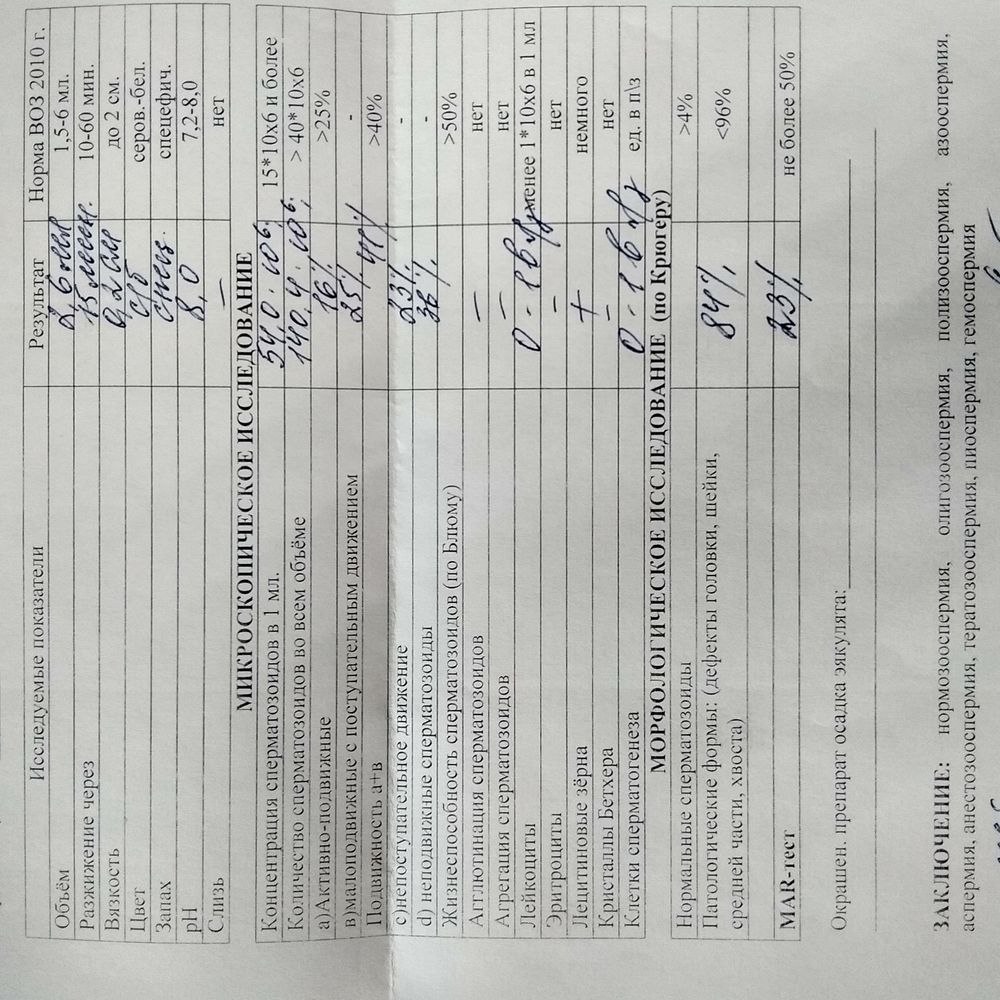 Исследуемые показатели Результат Норма ВОЗ 2010 г.
Объём 2,6 мл 1,5-6 мл.
Разжижение через 15 мин. 10-60 мин.
Вязкость 0,2 см до 2 см.
Цвет с/б серов.-бел.
Запах спец. спецефич.
pH 8,0 7,2-8,0
Слизь — нет
МИКРОСКОПИЧЕСКОЕ ИССЛЕДОВАНИЕ
Концентрация сперматозоидов в 1 мл. 54,0 · 10⁶; 15*10х6 и более
Количество сперматозоидов во всем объёме 140,4 · 10⁶; > 40*10х6
а)Активно-подвижные 16% >25%
в)малоподвижные с поступательным движением 25% -
Подвижность а+в 41% >40%
с)непоступательное движение 23% -
d) неподвижные сперматозоиды 36% -
Жизнеспособность сперматозоидов (по Блюму) >50%
Агглютинация сперматозоидов — нет
Агрегация сперматозоидов — нет
Лейкоциты 0 - 1 в п/з менее 1*10х6 в 1 мл
Эритроциты — нет
Лецитиновые зёрна + немного
Кристаллы Бетхера — нет
Клетки сперматогенеза 0 - 1 в п/з ед. в п\з
МОРФОЛОГИЧЕСКОЕ ИССЛЕДОВАНИЕ (по Крюгеру)
Нормальные сперматозоиды >4%
Патологические формы: (дефекты головки, шейки, 84% <96%
средней части, хвоста)
MAR-тест 23% не более 50%
Окрашен. препарат осадка эякулята:
ЗАКЛЮЧЕНИЕ: нормозооспермия, олигозооспермия, полизооспермия, азооспермия,
аспермия, анестозооспермия, тератозооспермия, пиоспермия, гемоспермия